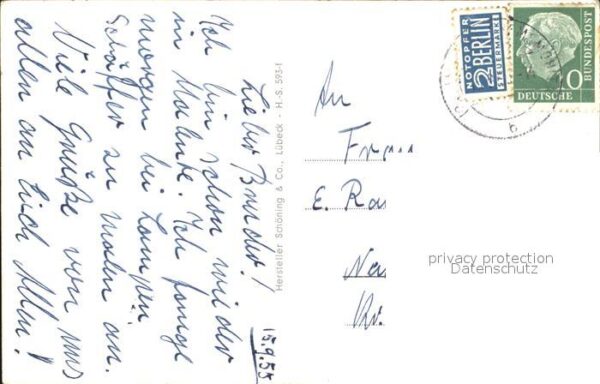 15.9.55
Lieber Bruder!
Ich bin schon wieder
in Malente. Ich fange
morgen bei Lampen
Schäffer zu malen an.
Viele Grüße von uns
allen an Euch Allen!
Hersteller Schöning & Co., Lübeck - H.-S. 593-1
NOTOPFER
2 BERLIN
STEUERMARKE
10
DEUTSCHE
BUNDESPOST
An
E. Ra
privacy protection
Datenschutz